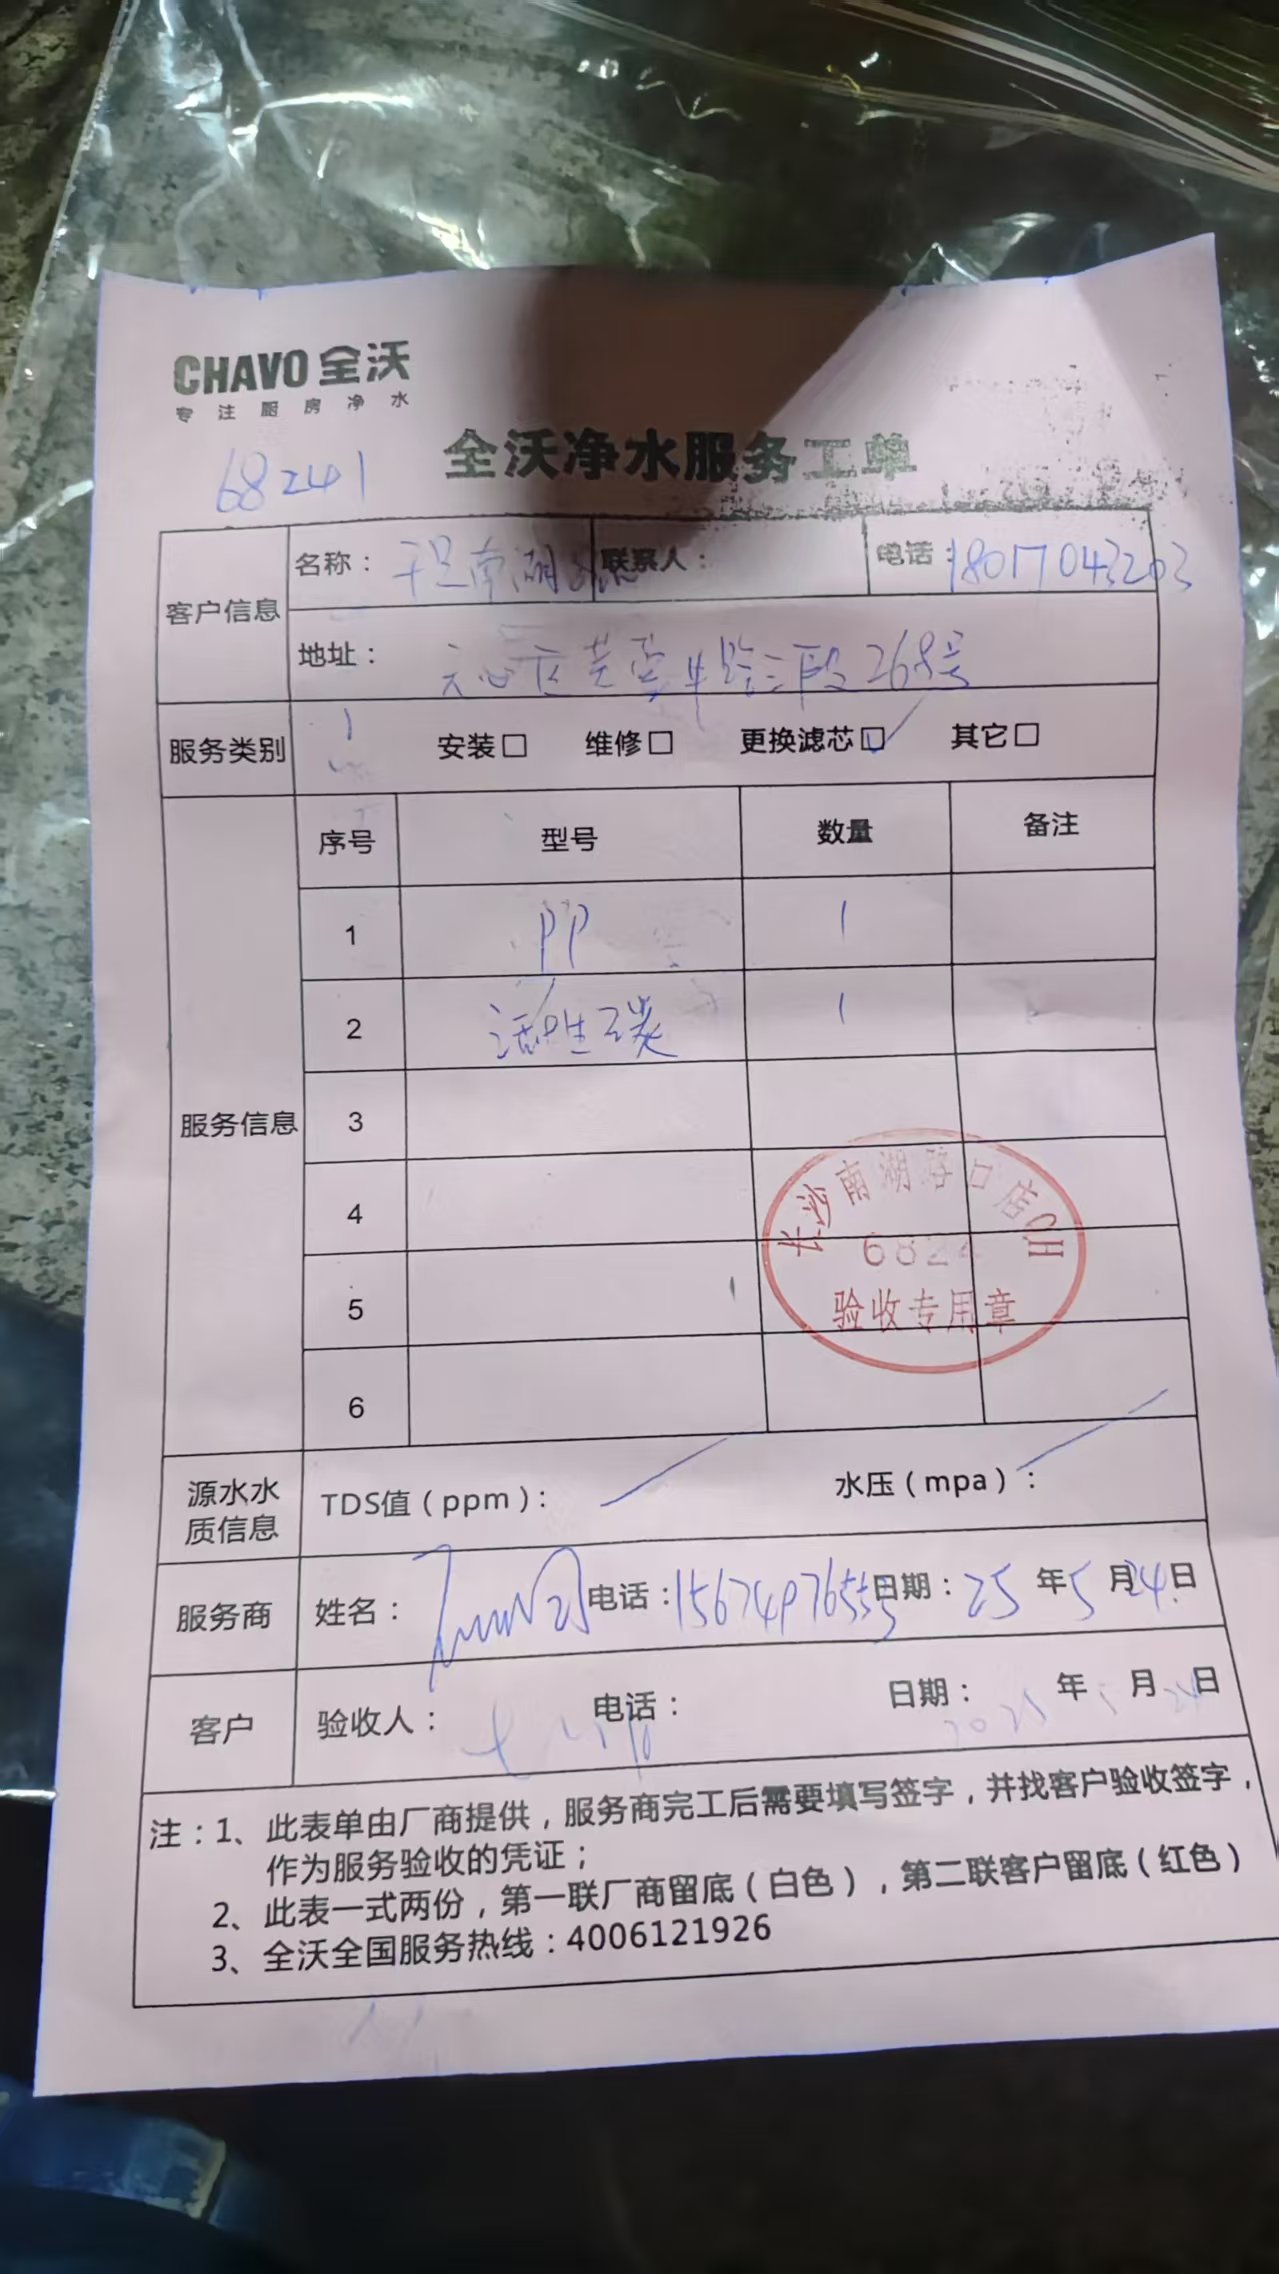 CHAVO 全沃
专注厨房净水
68241
全沃净水服务工单
客户信息
名称: 南湖
联系人:
电话: 18017043203
地址: 天心区芙蓉中路三段268号
服务类别
安装□ 维修□ 更换滤芯☑ 其它□
服务信息
序号 型号 数量 备注
1 PP 1
2 活性碳 1
3
4
5
6
长沙南湖路口店CH
6824
验收专用章
源水水质信息
TDS值（ppm）: 水压（mpa）:
服务商 姓名: 电话:15674976553 日期: 25 年 5 月 24 日
客户 验收人: 电话: 日期: 2025 年 5 月 24 日
注:1、此表单由厂商提供，服务商完工后需要填写签字，并找客户验收签字，
作为服务验收的凭证；
2、此表一式两份，第一联厂商留底（白色），第二联客户留底（红色）
3、全沃全国服务热线:4006121926